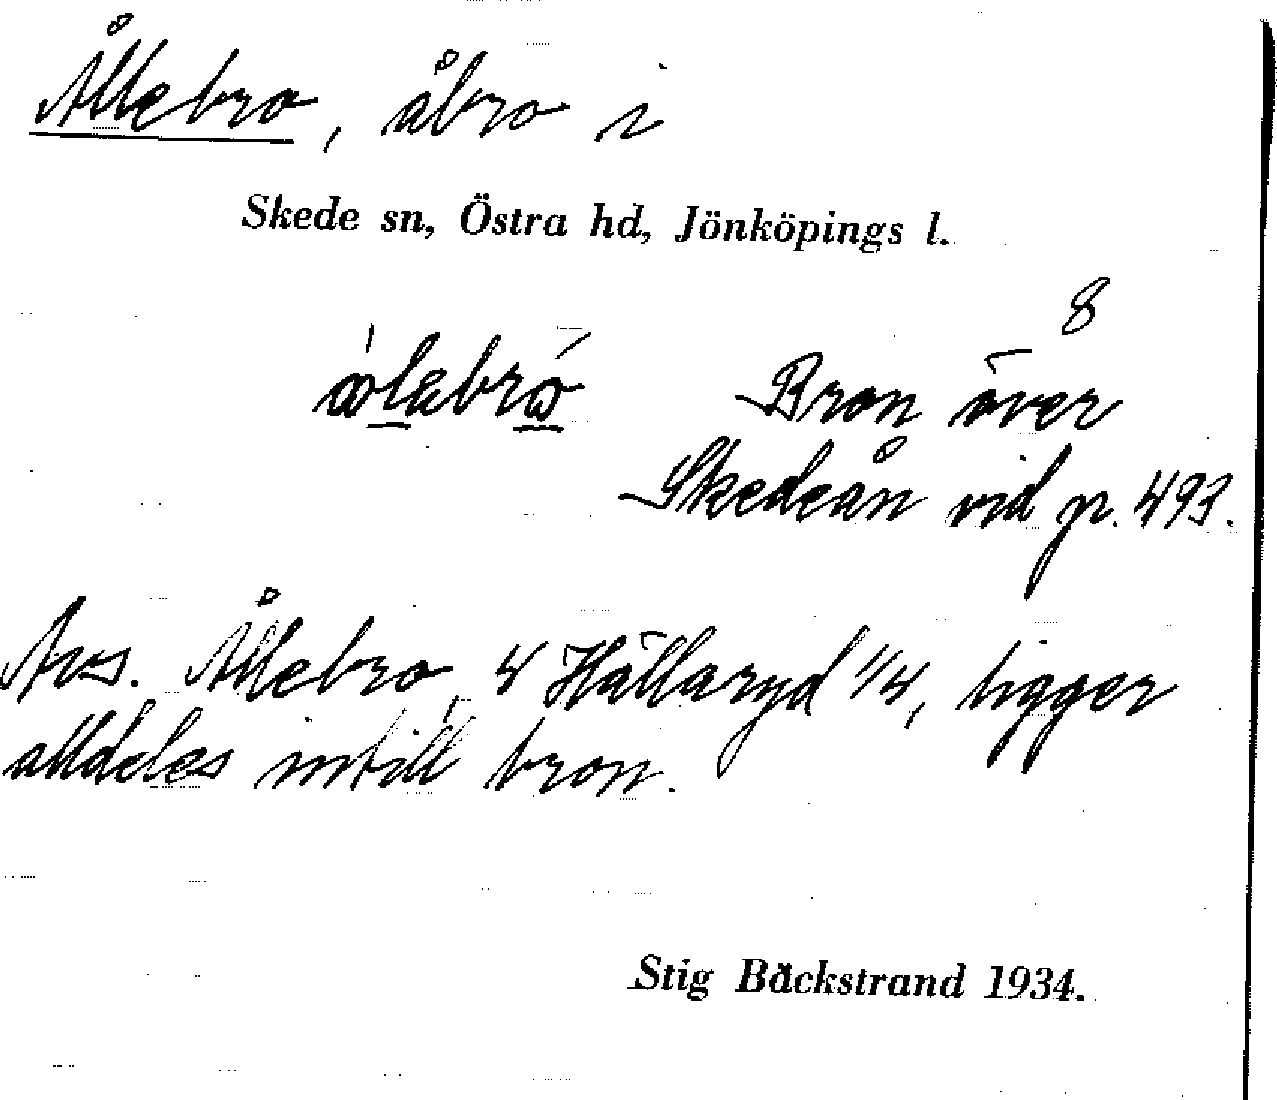 Ållebro, åbro i
Skede sn, Östra hd, Jönköpings l.
8
Bron över
Skedeån vid gr. 493.
Avs. Ållebro, 4 Hällaryd 1/4, ligger
alldeles intill bron.
Stig Bäckstrand 1934.